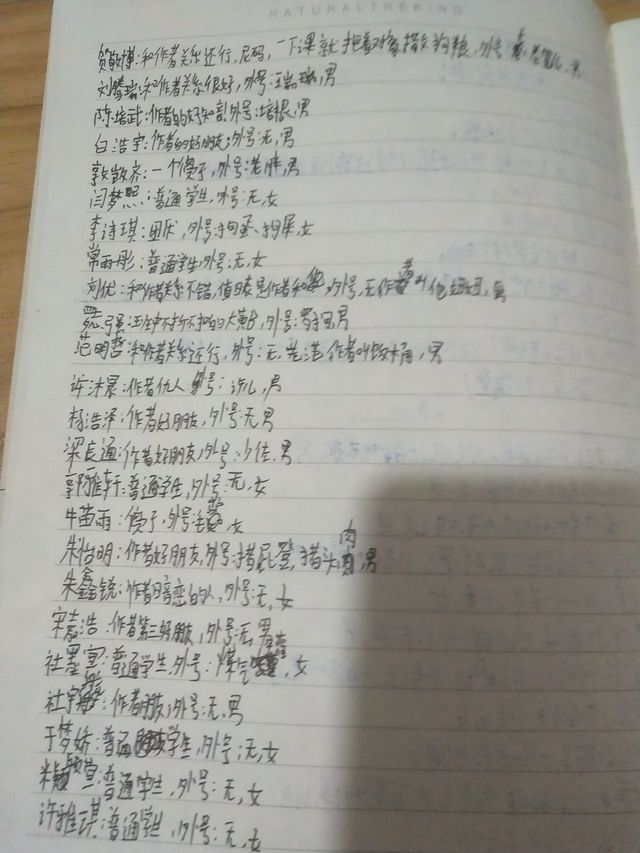 NATURALTHEKING
贺敏博:和作者关系还行,尼码,一下课就把着对象撒狗粮,外号 男
刘腾瑞:和作者关系很好,外号:王瑞琳,男
陈培武:作者的好知音,外号:培根,男
白浩宇:作者的好朋友,外号:无,男
郭启齐:一个傻子,外号:老胖,男
闫梦熙:普通学生,外号:无,女
李诗琪:田厌,外号:狗蛋、狗屎,女
常雨彤:普通学生,外号:无,女
刘优:和作者关系不错,值日表是作者和他,外号,无,作者叫他妞妞,男
强:班中不折不扣的大黄,外号: 男
范明哲:和作者关系还行,外号:无,作者叫饭桶,男
许沐晨:作者仇人,外号:许儿,男
杨浩泽:作者好朋友,外号:无,男
梁良通:作者好朋友,外号:少佐,男
郭雅轩:普通学生,外号:无,女
牛苗雨:傻子,外号: 女
朱怡明:作者好朋友,外号:猪屁登,猪头肉,男
朱鑫锐:作者暗恋的人,外号:无,女
宋嘉浩:作者第三好朋友,外号:无,男
杜墨寒:普通学生,外号:煤气罐,女
杜宇:作者朋友,外号:无,男
于梦娇:普通学生,外号:无,女
米颖萱:普通学生,外号:无,女
许雅琪:普通学生,外号:无,女